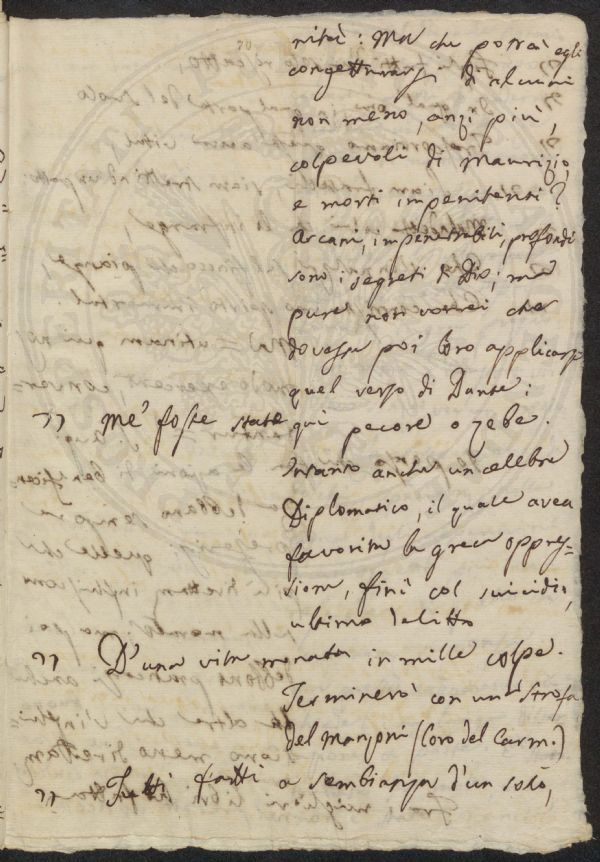 nità: Ma che potrà egli
congetturarsi di alcuni
non meno, anzi più,
colpevoli di Maurizio,
e morti impenitenti?
Arcani, impenetrabili, profondi
sono i segreti di Dio; ma
pure non vorrei che
dovesse poi loro applicarsi
quel verso di Dante:
" Me' foste state qui pecore o zebe.
Intanto anche un celebre
Diplomatico, il quale avea
favorita la greca oppres-
sione, finì col suicidio,
ultimo delitto
" D'una vita menata in mille colpe.
Terminerò con una strofa
del Manzoni (Coro del Carm.)
" Tutti fatti a sembianza d'un solo,